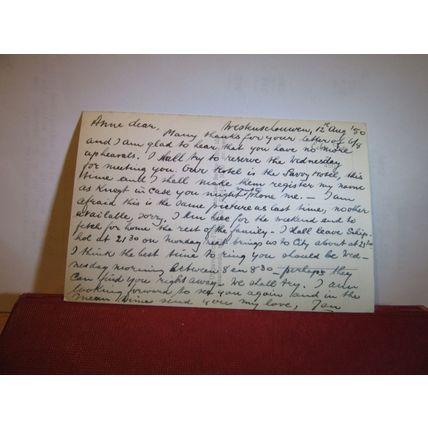 Anne dear, Westenschouwen, 12th Aug '50
Many thanks for your letter of 6/8
and I am glad to hear that you have no more
upheavals. I shall try to reserve the Wednesday
for meeting you. Our Hotel is the Savoy Hotel, this
time and I shall make them register my name
as in case you might phone me. — I am
afraid this is the same picture as last time, no other
available, sorry. I am here for the weekend and to
fetch for home the rest of the family. I shall leave Schip-
hol at 21 30 on Monday brings us to City about at
I think the best time to ring you should be Wed-
nesday morning between 8 en 8.30 — perhaps they
can find you right away. We shall try. I am
looking forward to see you again and in the
mean time send you my love, Jan